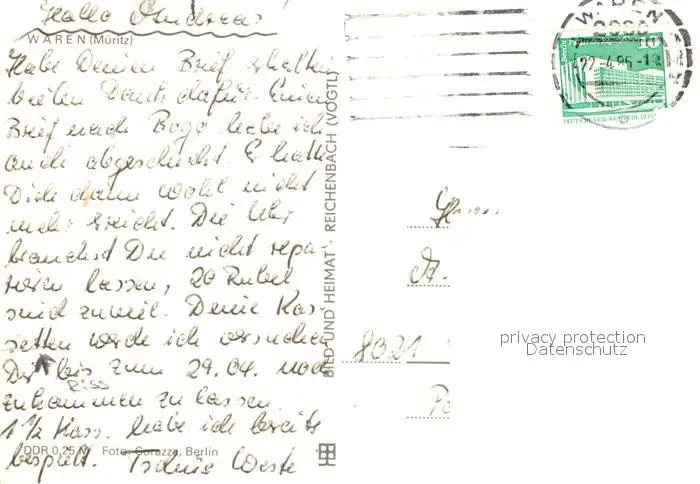 Hallo Andrea!
WAREN (Müritz)
Habe Deinen Brief erhalten
vielen Dank dafür. Einen
Brief nach Bugo habe ich
auch abgeschickt. Er hatte
Dich dann wohl nicht
mehr erreicht. Die Uhr
brauchst Du nicht repa-
rieren lassen, 20 Rubel
sind zuviel. Deine Kas-
setten werde ich versuchen
Dir bis zum 29.04. noch
Riss
zukommen zu lassen.
1 1/2 Kass. habe ich bereits
DDR 0,25 M Foto: Corazza, Berlin
bespielt. Tschüs
BILD UND HEIMAT · REICHENBACH (VOGTL)
Berlin
10
DEUTSCHE DEMOKRATISCHE REPUBLIK
8021
privacy protection
Datenschutz